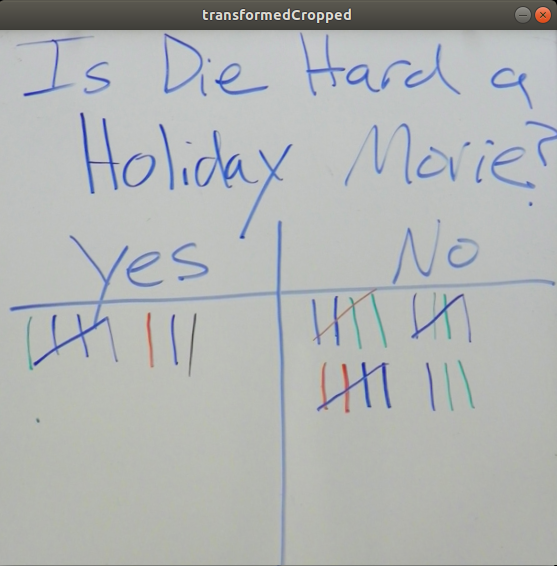 transformedCropped
Is Die Hard a
Holiday Movie?
Yes No